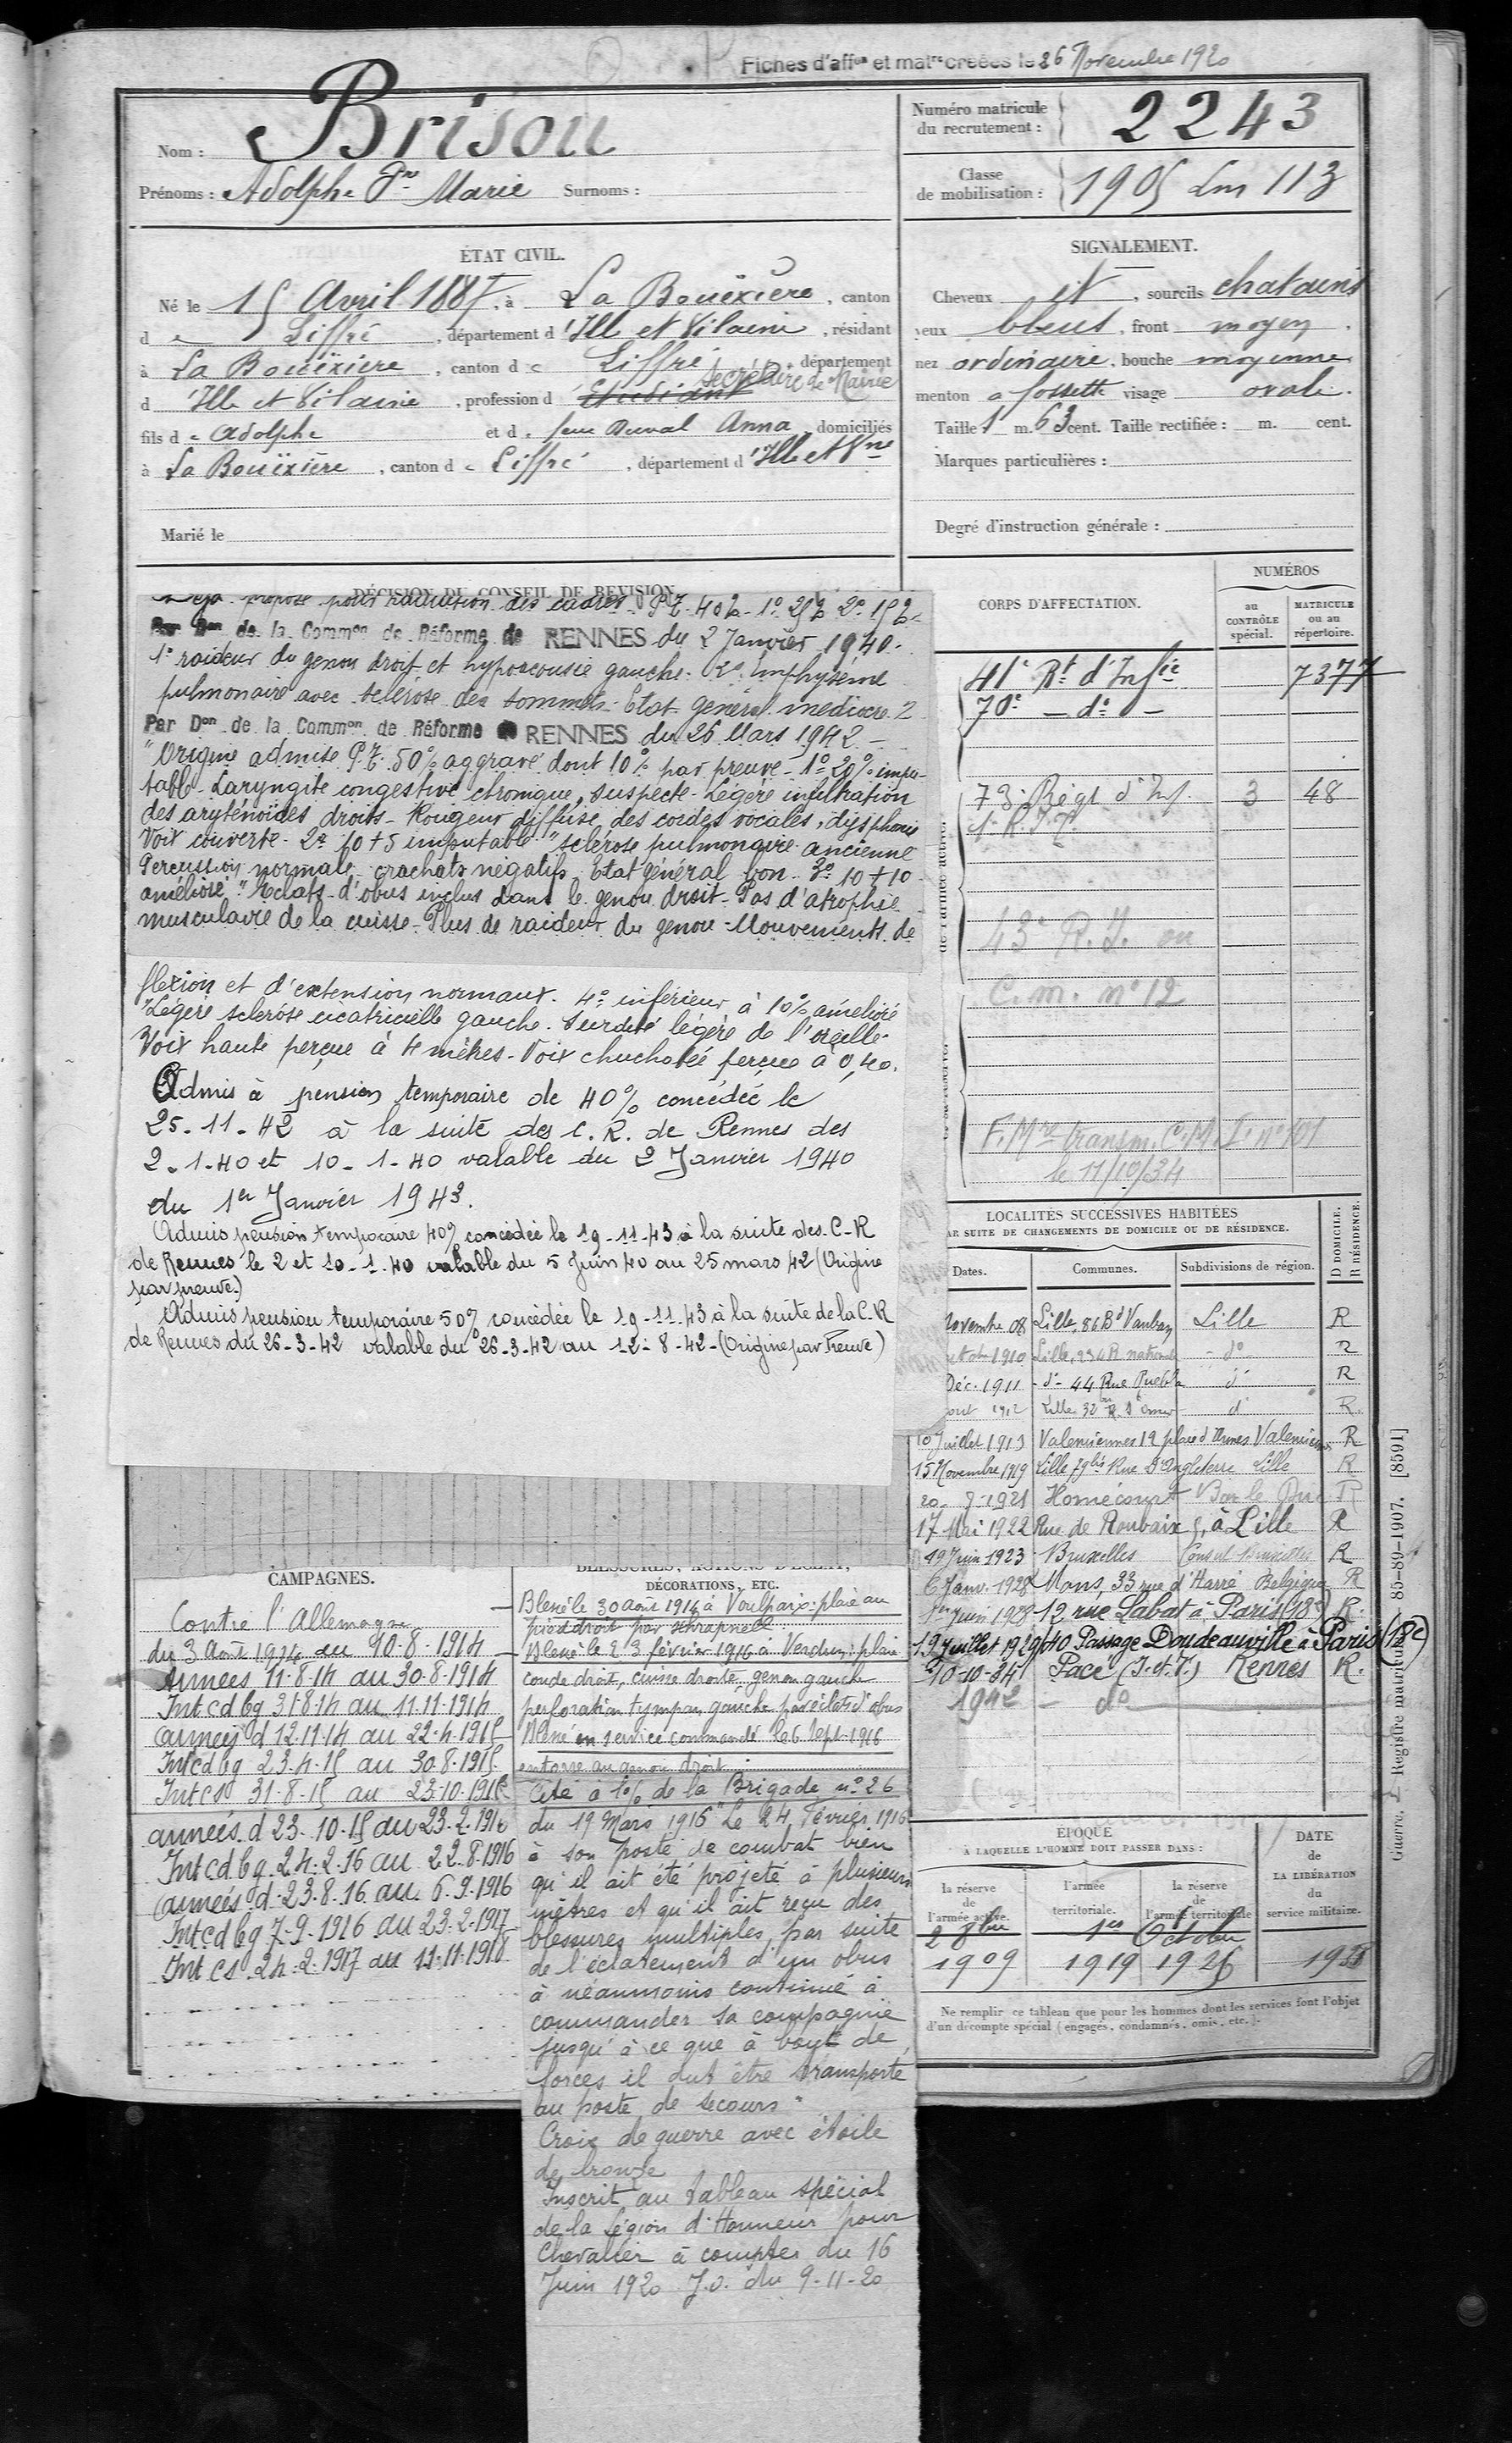 Fiches d'aff<sup>on</sup> et mat<sup>re</sup> créées le 26 Novembre 1920
Nom : Brisou
Prénoms : Adolphe Marie Surnoms :
Numéro matricule du recrutement : 2243
Classe de mobilisation : 1905 113
ÉTAT CIVIL.
Né le 15 Avril 1887, à La Bouëxière, canton
de Liffré, département d'Ille et Vilaine, résidant
à La Bouëxière, canton de Liffré, département
d Ille et Vilaine, profession d Etudiant Secrétaire de Mairie
fils de Adolphe et de Duval Anna, domiciliés
à La Bouëxière, canton de Liffré, département d'Ille et Vne
Marié le
SIGNALEMENT.
Cheveux et, sourcils chatains
yeux bleus, front moyen,
nez ordinaire, bouche moyenne
menton à fossette visage ovale.
Taille 1 m. 63 cent. Taille rectifiée : m. cent.
Marques particulières :
Degré d'instruction générale :
DÉCISION DU CONSEIL DE REVISION
Déjà proposé pour radiation des cadres. P.T. 40% 1° 25% 2° 15%
Par Don de la Common de Réforme de RENNES du 2 Janvier 1940.
1° raideur du genou droit et hypoacousie gauche. 2° Emphysème
pulmonaire avec sclérose des sommets. Etat général médiocre
Par Don de la Common de Réforme RENNES du 26 Mars 1942 -
"Origine admise P.T. 50% aggravé dont 10% par preuve - 1° 20% impu-
table - Laryngite congestive chronique, suspecte - Légère infiltration
des aryténoïdes droits - Rougeur diffuse des cordes vocales, dysphonie
Voix couverte. 2° 10+5 imputable "sclérose pulmonaire ancienne
Percussion normale - crachats négatifs. Etat général bon. 3° 10+10
amélioré. "Eclats d'obus inclus dans le genou droit. Pas d'atrophie
musculaire de la cuisse - Plus de raideur du genou - Mouvements de
flexion et d'extension normaux. 4° inférieur à 10% amélioré
"Légère sclérose cicatricielle gauche. Surdité légère de l'oreille.
Voix haute perçue à 4 mètres - Voix chuchotée perçue à 0,40.
Admis à pension temporaire de 40% concédée le
25-11-42 à la suite des C. R. de Rennes des
2-1-40 et 10-1-40 valable du 2 Janvier 1940
du 1er Janvier 1943.
Admis pension temporaire 40% concédée le 19-11-43 à la suite des C-R
de Rennes le 2 et 10-1-40 valable du 5 Juin 40 au 25 mars 42 (Origine
par preuve.)
Admis pension temporaire 50% concédée le 19-11-43 à la suite de la C.R
de Rennes du 26-3-42 valable du 26-3-42 au 12-8-42 - (Origine par Preuve)
CORPS D'AFFECTATION.
NUMÉROS
au CONTRÔLE spécial.
MATRICULE ou au répertoire.
41e Rt d'Infie 7377
70e - do -
73e Régt d'Inf. 3 48
1. R. I. T.
43e R. I. ou
C. m. n° 12
F. Mre transm. C.M.I. n° 101
le 11/10/34
LOCALITÉS SUCCESSIVES HABITÉES
PAR SUITE DE CHANGEMENTS DE DOMICILE OU DE RÉSIDENCE.
Dates. Communes. Subdivisions de région. D DOMICILE. R RÉSIDENCE.
Novembre 08 Lille, 86 Bd Vauban Lille R
1910 Lille, 234 R nationale - do R
Déc. 1911 - do - 44 Rue Puebla do R
1912 Lille 32 R. St Omer do R.
10 Juillet 1913 Valenciennes 12 place d'Armes Valenciennes R
15 Novembre 1919 Lille 79bis Rue d'Angleterre Lille R
20. 7-1921 Homécourt Bar le Duc R
17 Mai 1922 Rue de Roubaix 5, à Lille R
19 Juin 1923 Bruxelles Consul Bruxelles R
6 Janv. 1928 Mons, 33 rue d'Harré Belgique R
1er Juin 1928 12 rue Labat à Paris (18e) R.
19 Juillet 1929 40 Passage Doudeauville à Paris (18e)
10-10-34 Pacé (I.et.V.) Rennes R.
1942 - do
CAMPAGNES.
Contre l'Allemagne
du 3 Août 1914 au 10-8-1914
Armées 11-8-14 au 30-8-1914
Int cd bg 31-8-14 au 11-11-1914
armées d 12-11-14 au 22-4-1915
Int cd bg 23-4-15 au 30-8-1915
Int cs 31-8-15 au 23-10-1915
armées d 23-10-15 au 23-2-1916
Int cd bg 24-2-16 au 22-8-1916
armées d 23-8-16 au 6-9-1916
Int cd bg 7-9-1916 au 23-2-1917
Int cs 24-2-1917 au 11-11-1918
BLESSURES, ACTIONS D'ÉCLAT,
DÉCORATIONS, ETC.
Blessé le 30 août 1914 à Voulpaix : plaie au
pied droit par schrapnell
Blessé le 23 février 1916 à Verdun : plaie
coude droit, cuisse droite, genou gauche
perforation tympan gauche par éclats d'obus
Blessé en service commandé le 6 Sept. 1916
entorse au genou droit
Cité à l'o/ de la Brigade n° 26
du 19 Mars 1916 "Le 24 Février 1916
à son poste de combat bien
qu'il ait été projeté à plusieurs
mètres et qu'il ait reçu des
blessures multiples, par suite
de l'éclatement d'un obus
à néanmoins continué à
commander sa compagnie
jusqu'à ce que à bout de
forces il dut être transporté
au poste de secours"
Croix de guerre avec étoile
de bronze
Inscrit au tableau spécial
de la Légion d'Honneur pour
Chevalier à compter du 16
Juin 1920 J.O. du 9-11-20
ÉPOQUE
À LAQUELLE L'HOMME DOIT PASSER DANS :
la réserve de l'armée active.
l'armée territoriale.
la réserve de l'armée territoriale
DATE de LA LIBÉRATION du service militaire.
1er Octobre
1909 1919 1926
Ne remplir ce tableau que pour les hommes dont les services font l'objet
d'un décompte spécial (engagés, condamnés, omis, etc.).
Guerre. Registre matricule. 85-89-1907. [8591]